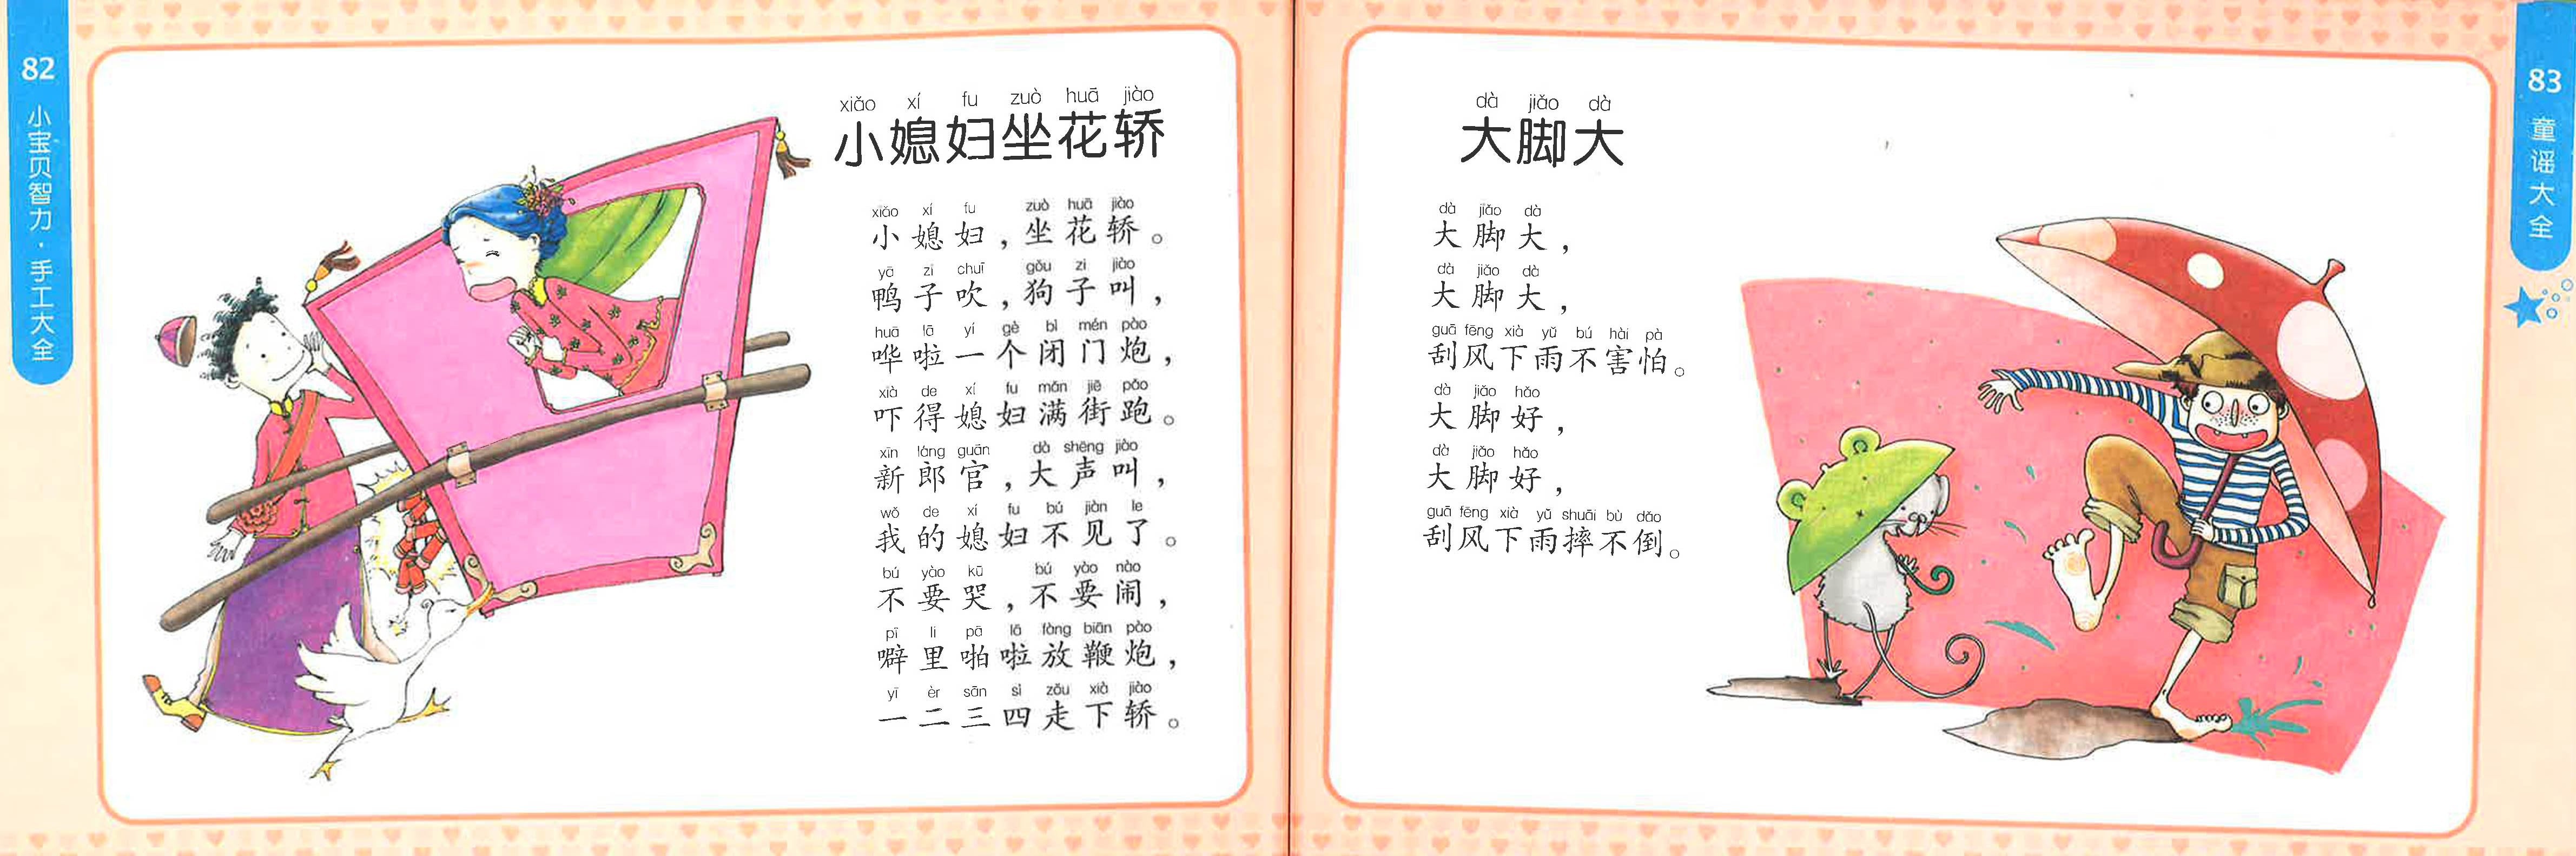 82
小宝贝智力·手工大全
xiǎo xí fu zuò huā jiào
小媳妇坐花轿
xiǎo xí fu zuò huā jiào
小媳妇，坐花轿。
yā zi chuī gǒu zi jiào
鸭子吹，狗子叫，
huā lā yí gè bì mén pào
哗啦一个闭门炮，
xià de xí fu mǎn jiē pǎo
吓得媳妇满街跑。
xīn láng guān dà shēng jiào
新郎官，大声叫，
wǒ de xí fu bú jiàn le
我的媳妇不见了。
bú yào kū bú yào nào
不要哭，不要闹，
pī li pā lā fàng biān pào
噼里啪啦放鞭炮，
yī èr sān sì zǒu xià jiào
一二三四走下轿。
dà jiǎo dà
大脚大
dà jiǎo dà
大脚大，
dà jiǎo dà
大脚大，
guā fēng xià yǔ bú hài pà
刮风下雨不害怕。
dà jiǎo hǎo
大脚好，
dà jiǎo hǎo
大脚好，
guā fēng xià yǔ shuāi bù dǎo
刮风下雨摔不倒。
83
童谣大全